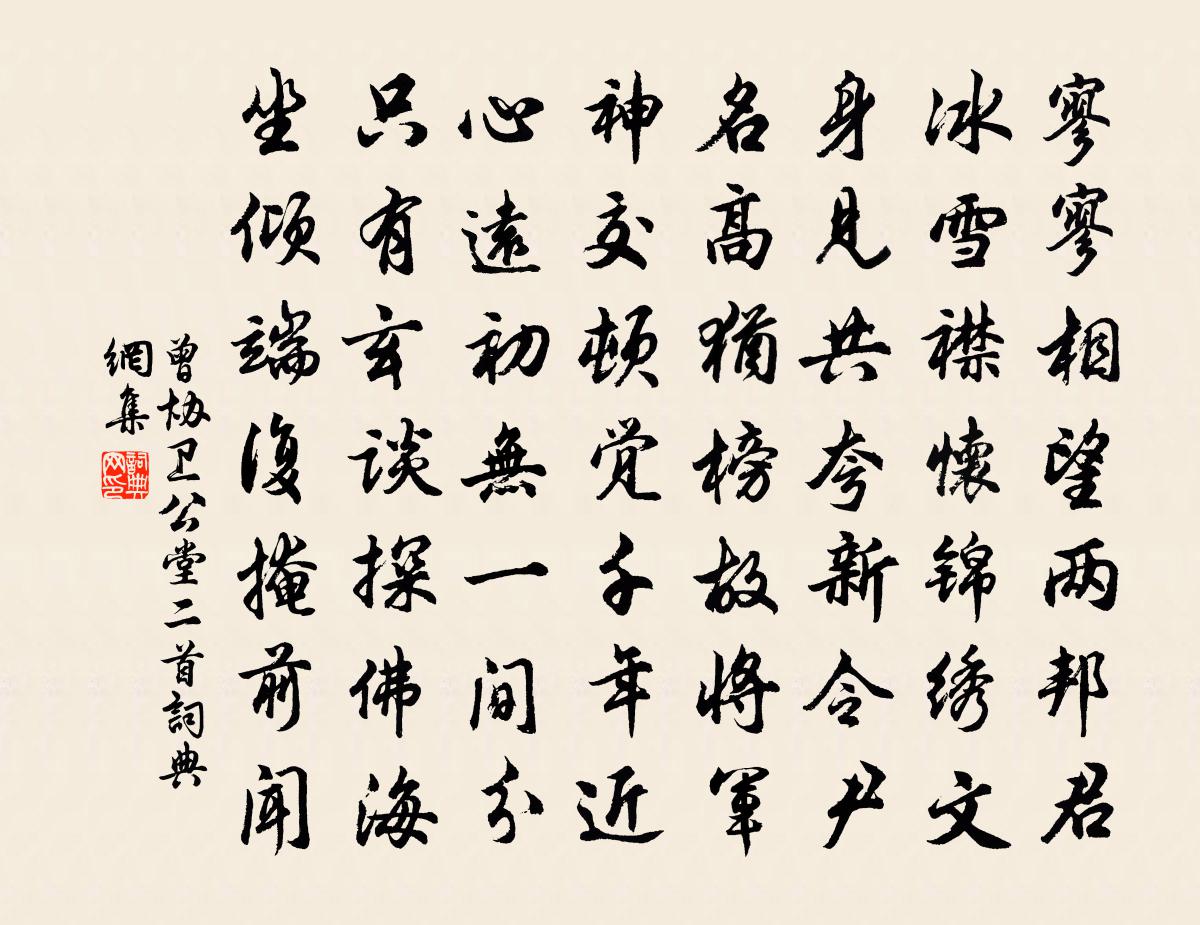 寥寥相望两邦君
冰雪襟懷锦绣文
身見共夸新令尹
名高猶榜故將軍
神交頓觉千年近
心遠初無一间分
只有玄谈探佛海
坐倾端復掩前闻
曾协卫公堂二首詞典
網集
詞典网印